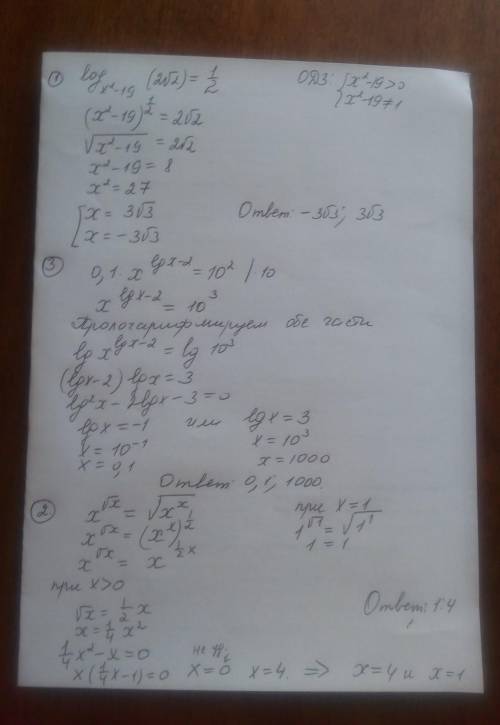 ① log_{x²-19} (2√2) = 1/2 ОДЗ: { x²-19>0
x²-19≠1
(x²-19)^{1/2} = 2√2
√(x²-19) = 2√2
x²-19 = 8
x² = 27
[ x = 3√3 Ответ: -3√3; 3√3
x = -3√3
③ 0,1 · x^{lgx-2} = 10² | ·10
x^{lgx-2} = 10³
Прологарифмируем обе части
lg x^{lgx-2} = lg 10³
(lgx-2) lgx = 3
lg²x - 2lgx - 3 = 0
lgx = -1 или lgx = 3
x = 10⁻¹ x = 10³
x = 0,1 x = 1000
Ответ: 0,1; 1000
② x^{√x} = √(x^x) при x=1
x^{√x} = (x^x)^{1/2} 1^{√1} = √(1¹)
x^{√x} = x^{1/2 x} 1 = 1
при x>0
√x = 1/2 x Ответ: 1; 4
x = 1/4 x²
1/4 x² - x = 0
x(1/4 x - 1) = 0 x = 0 x = 4. ⇒ x = 4 и x = 1